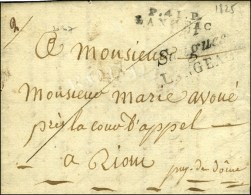 1825
P.41.P.
LANGEAC
A Monsieur
Monsieur Marie avoué
près la cour d'appel
a Riom
puy de dôme